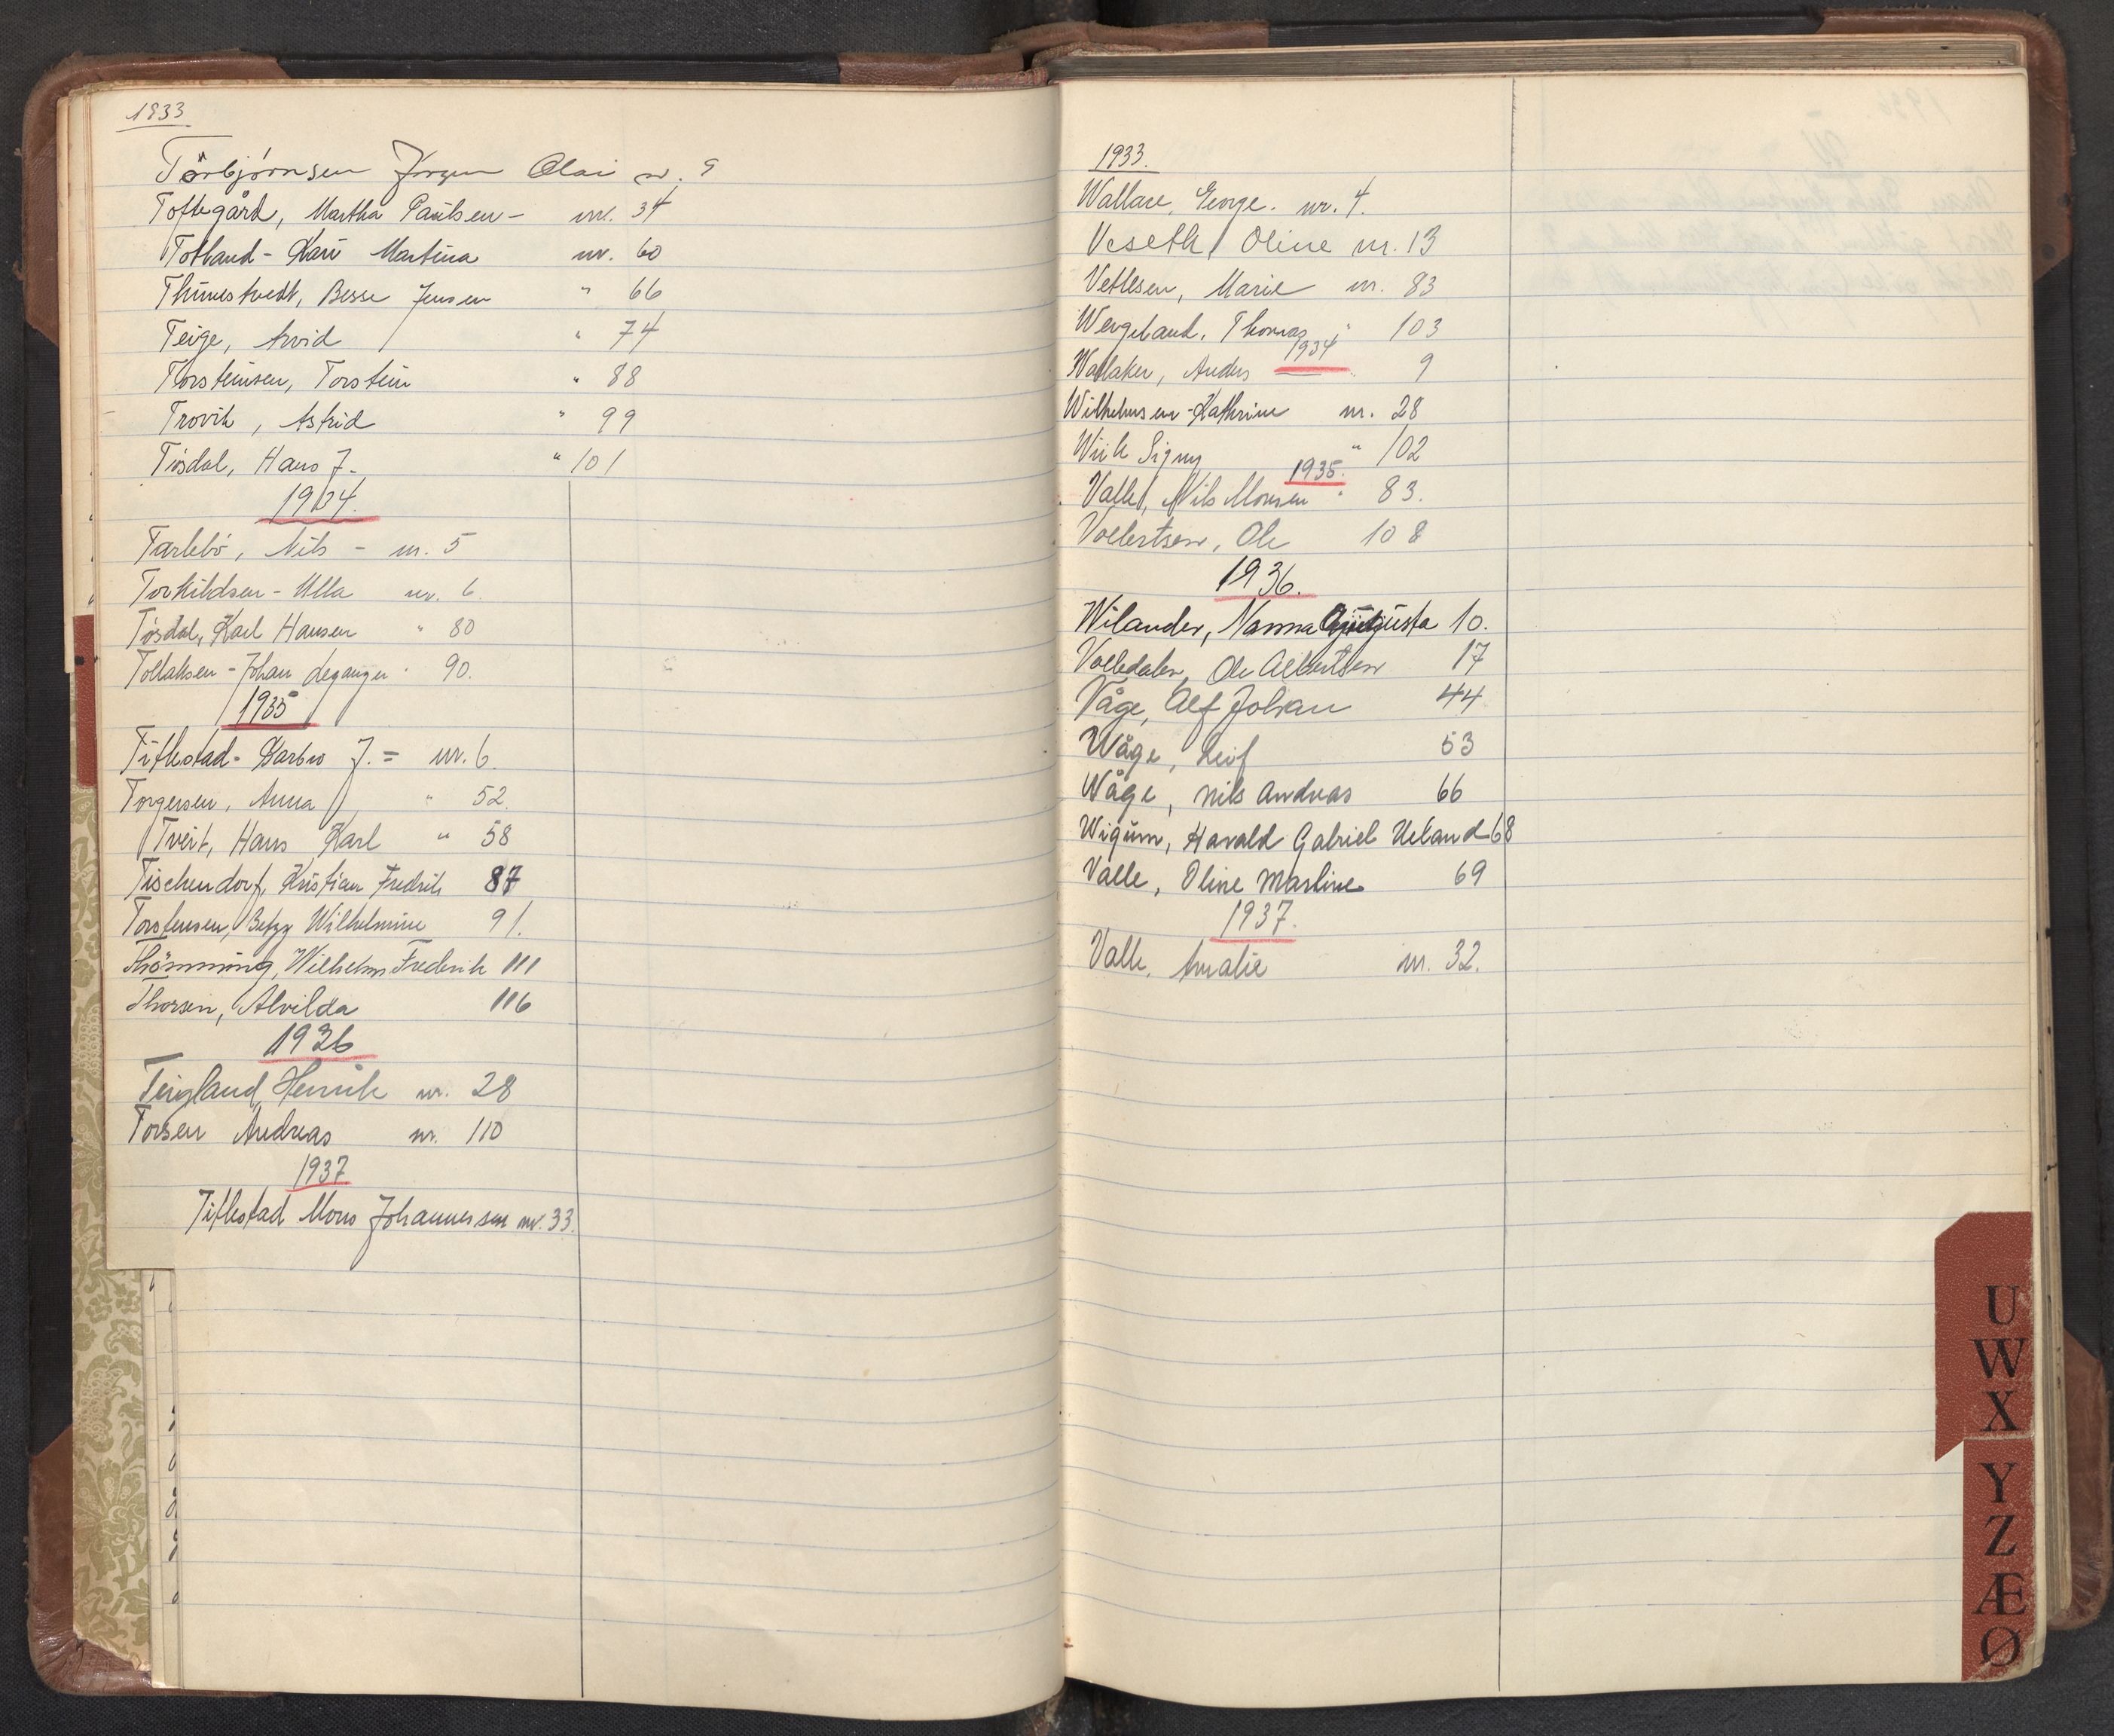 1933
Törbjörnsen Jörgen Olai nr. 9
Toftegård, Martha Paulsen - nr. 34
Totland - Kari Martina nr. 60
Thunestvedt, Besse Jensen " 66
Teige, Arvid " 74
Torsteinsen, Torstein " 88
Trovik, Astrid " 99
Tösdal, Hans J. " 101
1934.
Tarlebö, Nils - nr. 5
Torkildsen - Ulla nr. 6.
Tösdal, Karl Hansen " 80
Tollaksen - Johan " 90.
1935
Titlestad - Barbro J. = nr. 6
Torgersen, Anna " 52.
Tveit, Hans Karl " 58
Tischendorf, Kristian Fredrik 87
Torstensen, Betzy Wilhelmine 91.
Thömming, Wilhelm Fredrik 111
Thorsen, Alvilda 116
1936
Teigland, Henrik nr. 28
Torsen Andreas nr. 110
1937
Titlestad Mons Johannessen nr. 33.
1933.
Wallace, George. nr. 4.
Veseth, Oline nr. 13
Vetlesen, Marie nr. 83
Wergeland, Thomas " 103
1934
Wallaker, Anders 9
Wilhelmsen - Kathrine nr. 28
Wiik Signy " 102
1935.
Valle, Nils Monsen " 83.
Volbertsen, Ole 108
1936.
Wilander, Nanna Augusta 10.
Volledalen, Ole Albertsen 17
Våge, Alf Johan 44
Wåge, Leif 53
Wåge, Nils Andreas 66
Wigum, Harald Gabriel Ueland 68
Valle, Oline Martine 69
1937.
Valle, Amalie nr. 32.
U
W
X
Y
Z
Æ
Ø